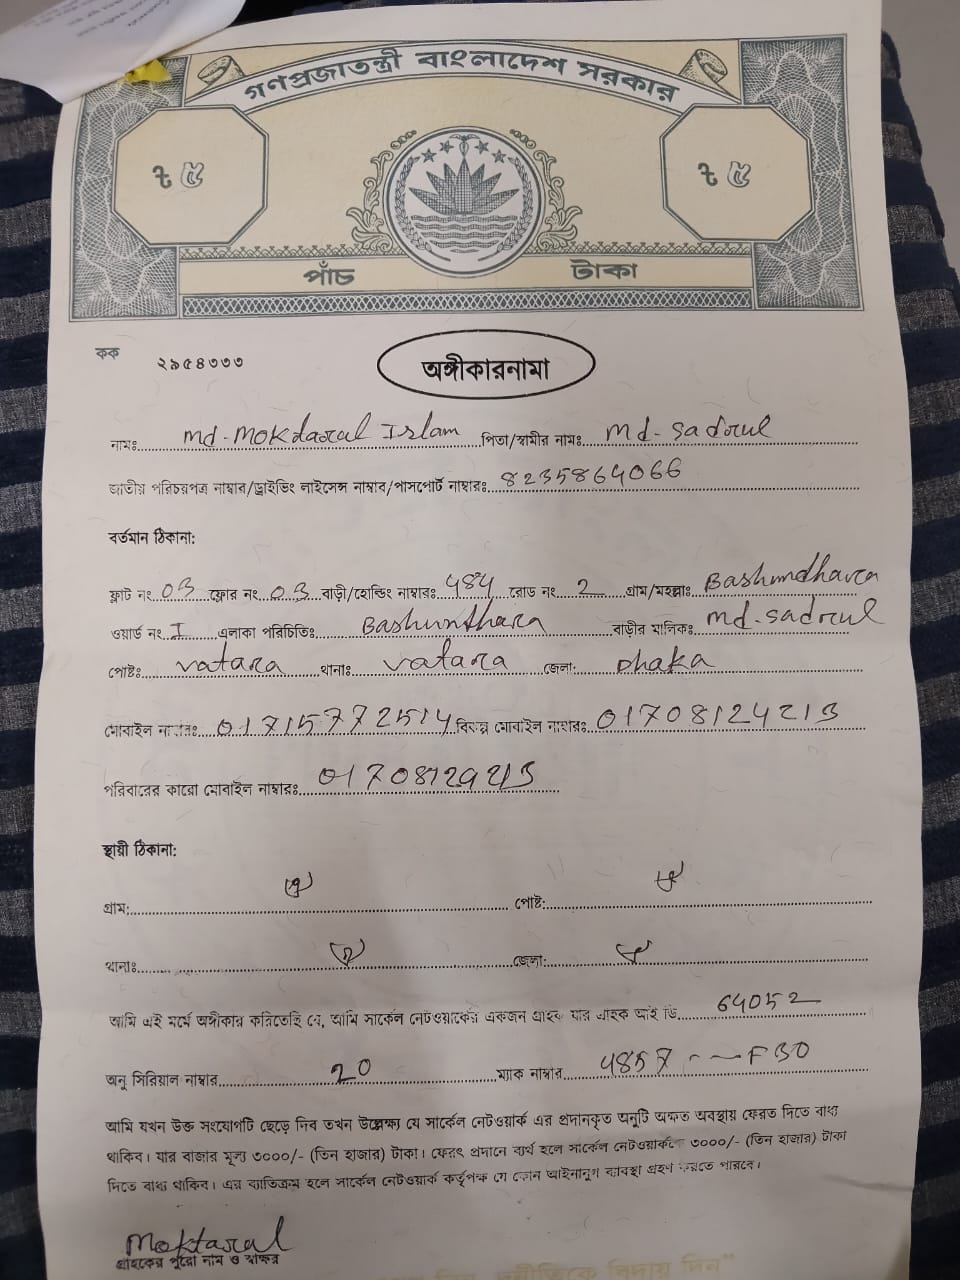 গণপ্রজাতন্ত্রী বাংলাদেশ সরকার
৳ ৫ ৳ ৫
পাঁচ টাকা
কক ২৯৫৪৩৩৩
অঙ্গীকারনামা
নামঃ md-Mokdaral Islam পিতা/স্বামীর নামঃ md-sadrul
জাতীয় পরিচয়পত্র নাম্বার/ড্রাইভিং লাইসেন্স নাম্বার/পাসপোর্ট নাম্বারঃ 8235864066
বর্তমান ঠিকানা:
ফ্লাট নং 03 ফ্লোর নং 03 বাড়ী/হোল্ডিং নাম্বারঃ 484 রোড নং 2 গ্রাম/মহল্লাঃ Bashundhara
ওয়ার্ড নং I এলাকা পরিচিতিঃ Bashundhara বাড়ীর মালিকঃ md-sadrul
পোষ্টঃ vatara থানাঃ vatara জেলা: Dhaka
মোবাইল নাম্বারঃ 01715772514 বিকল্প মোবাইল নাম্বারঃ 01708124213
পরিবারের কারো মোবাইল নাম্বারঃ
স্থায়ী ঠিকানা:
গ্রাম: পোষ্ট:
থানাঃ জেলা:
আমি এই মর্মে অঙ্গীকার করিতেছি যে, আমি সার্কেল নেটওয়ার্কের একজন গ্রাহক যার গ্রাহক আই ডি 64052
অনু সিরিয়াল নাম্বার 20 ম্যাক নাম্বার 4857 ~ ~ FBO
আমি যখন উক্ত সংযোগটি ছেড়ে দিব তখন উল্লেক্ষ্য যে সার্কেল নেটওয়ার্ক এর প্রদানকৃত অনুটি অক্ষত অবস্থায় ফেরত দিতে বাধ্য
থাকিব। যার বাজার মূল্য ৩০০০/- (তিন হাজার) টাকা। ফেরৎ প্রদানে ব্যর্থ হলে সার্কেল নেটওয়ার্ককে ৩০০০/- (তিন হাজার) টাকা
দিতে বাধ্য থাকিব। এর ব্যতিক্রম হলে সার্কেল নেটওয়ার্ক কর্তৃপক্ষ যে কোন আইনানুগ ব্যবস্থা গ্রহণ করতে পারবে।
Moktaral
গ্রাহকের পুরো নাম ও স্বাক্ষর
দুর্নীতিকে বিদায় দিন"